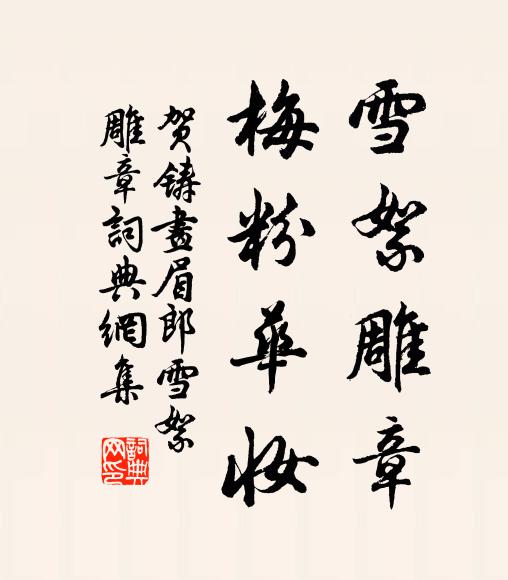 雪絮雕章
梅粉華妝
贺铸畫眉郎雪絮
雕章詞典網集
詞典网印